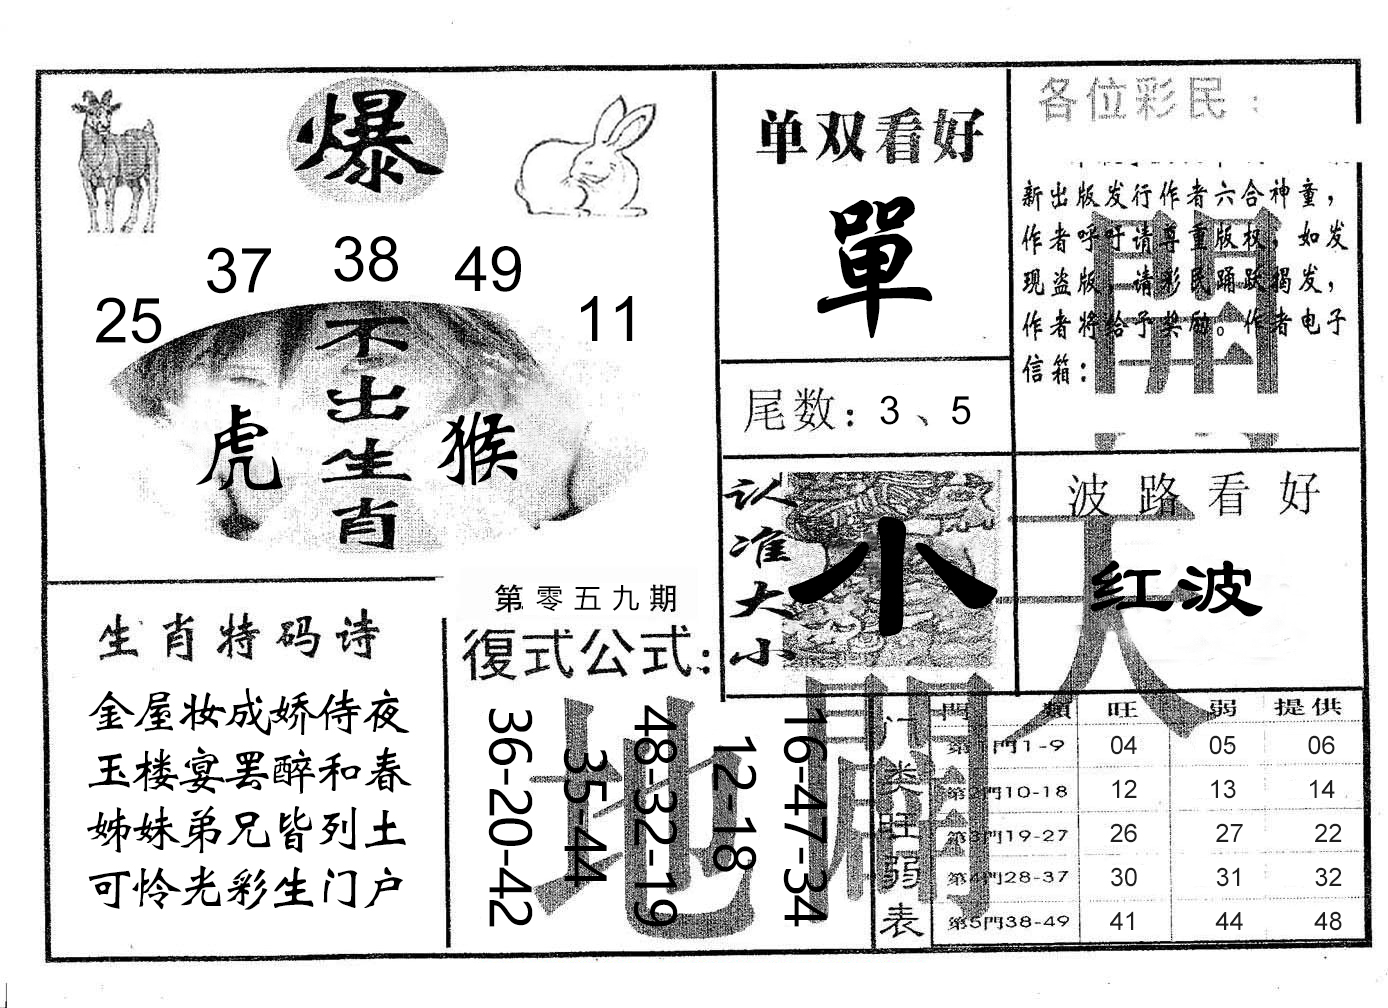 爆
37 38 49
25 11
不出生肖
虎 猴
单双看好
單
尾数：3、5
各位彩民：
新出版发行作者六合神童，
作者呼吁请尊重版权，如发
现盗版，请彩民踊跃揭发，
作者将给予奖励。作者电子
信箱：
認准大小
小
波路看好
红波
生肖特码诗
金屋妆成娇侍夜
玉楼宴罢醉和春
姊妹弟兄皆列土
可怜光彩生门户
第零五九期
復式公式：
36-20-42
35-44
48-32-19
12-18
16-47-34
天
地
門类旺弱表
門類 旺 弱 提供
第1門1-9 04 05 06
第2門10-18 12 13 14
第3門19-27 26 27 22
第4門28-37 30 31 32
第5門38-49 41 44 48